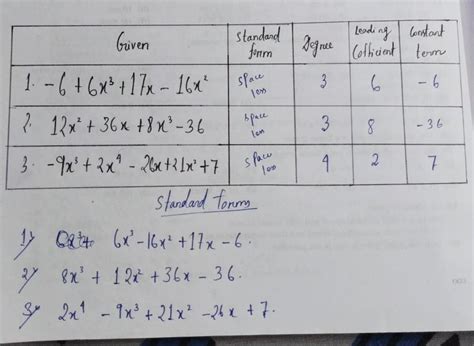 Given Standard form Degree Leading Cofficient Constant term
1. -6 + 6x³ + 17x - 16x² space less 3 6 -6
2. 12x² + 36x + 8x³ - 36 space less 3 8 -36
3. -9x³ + 2x⁴ - 26x + 21x² + 7 space less 4 2 7
Standard forms
1) 6x³ - 16x² + 17x - 6.
2) 8x³ + 12x² + 36x - 36.
3) 2x⁴ - 9x³ + 21x² - 26x + 7.